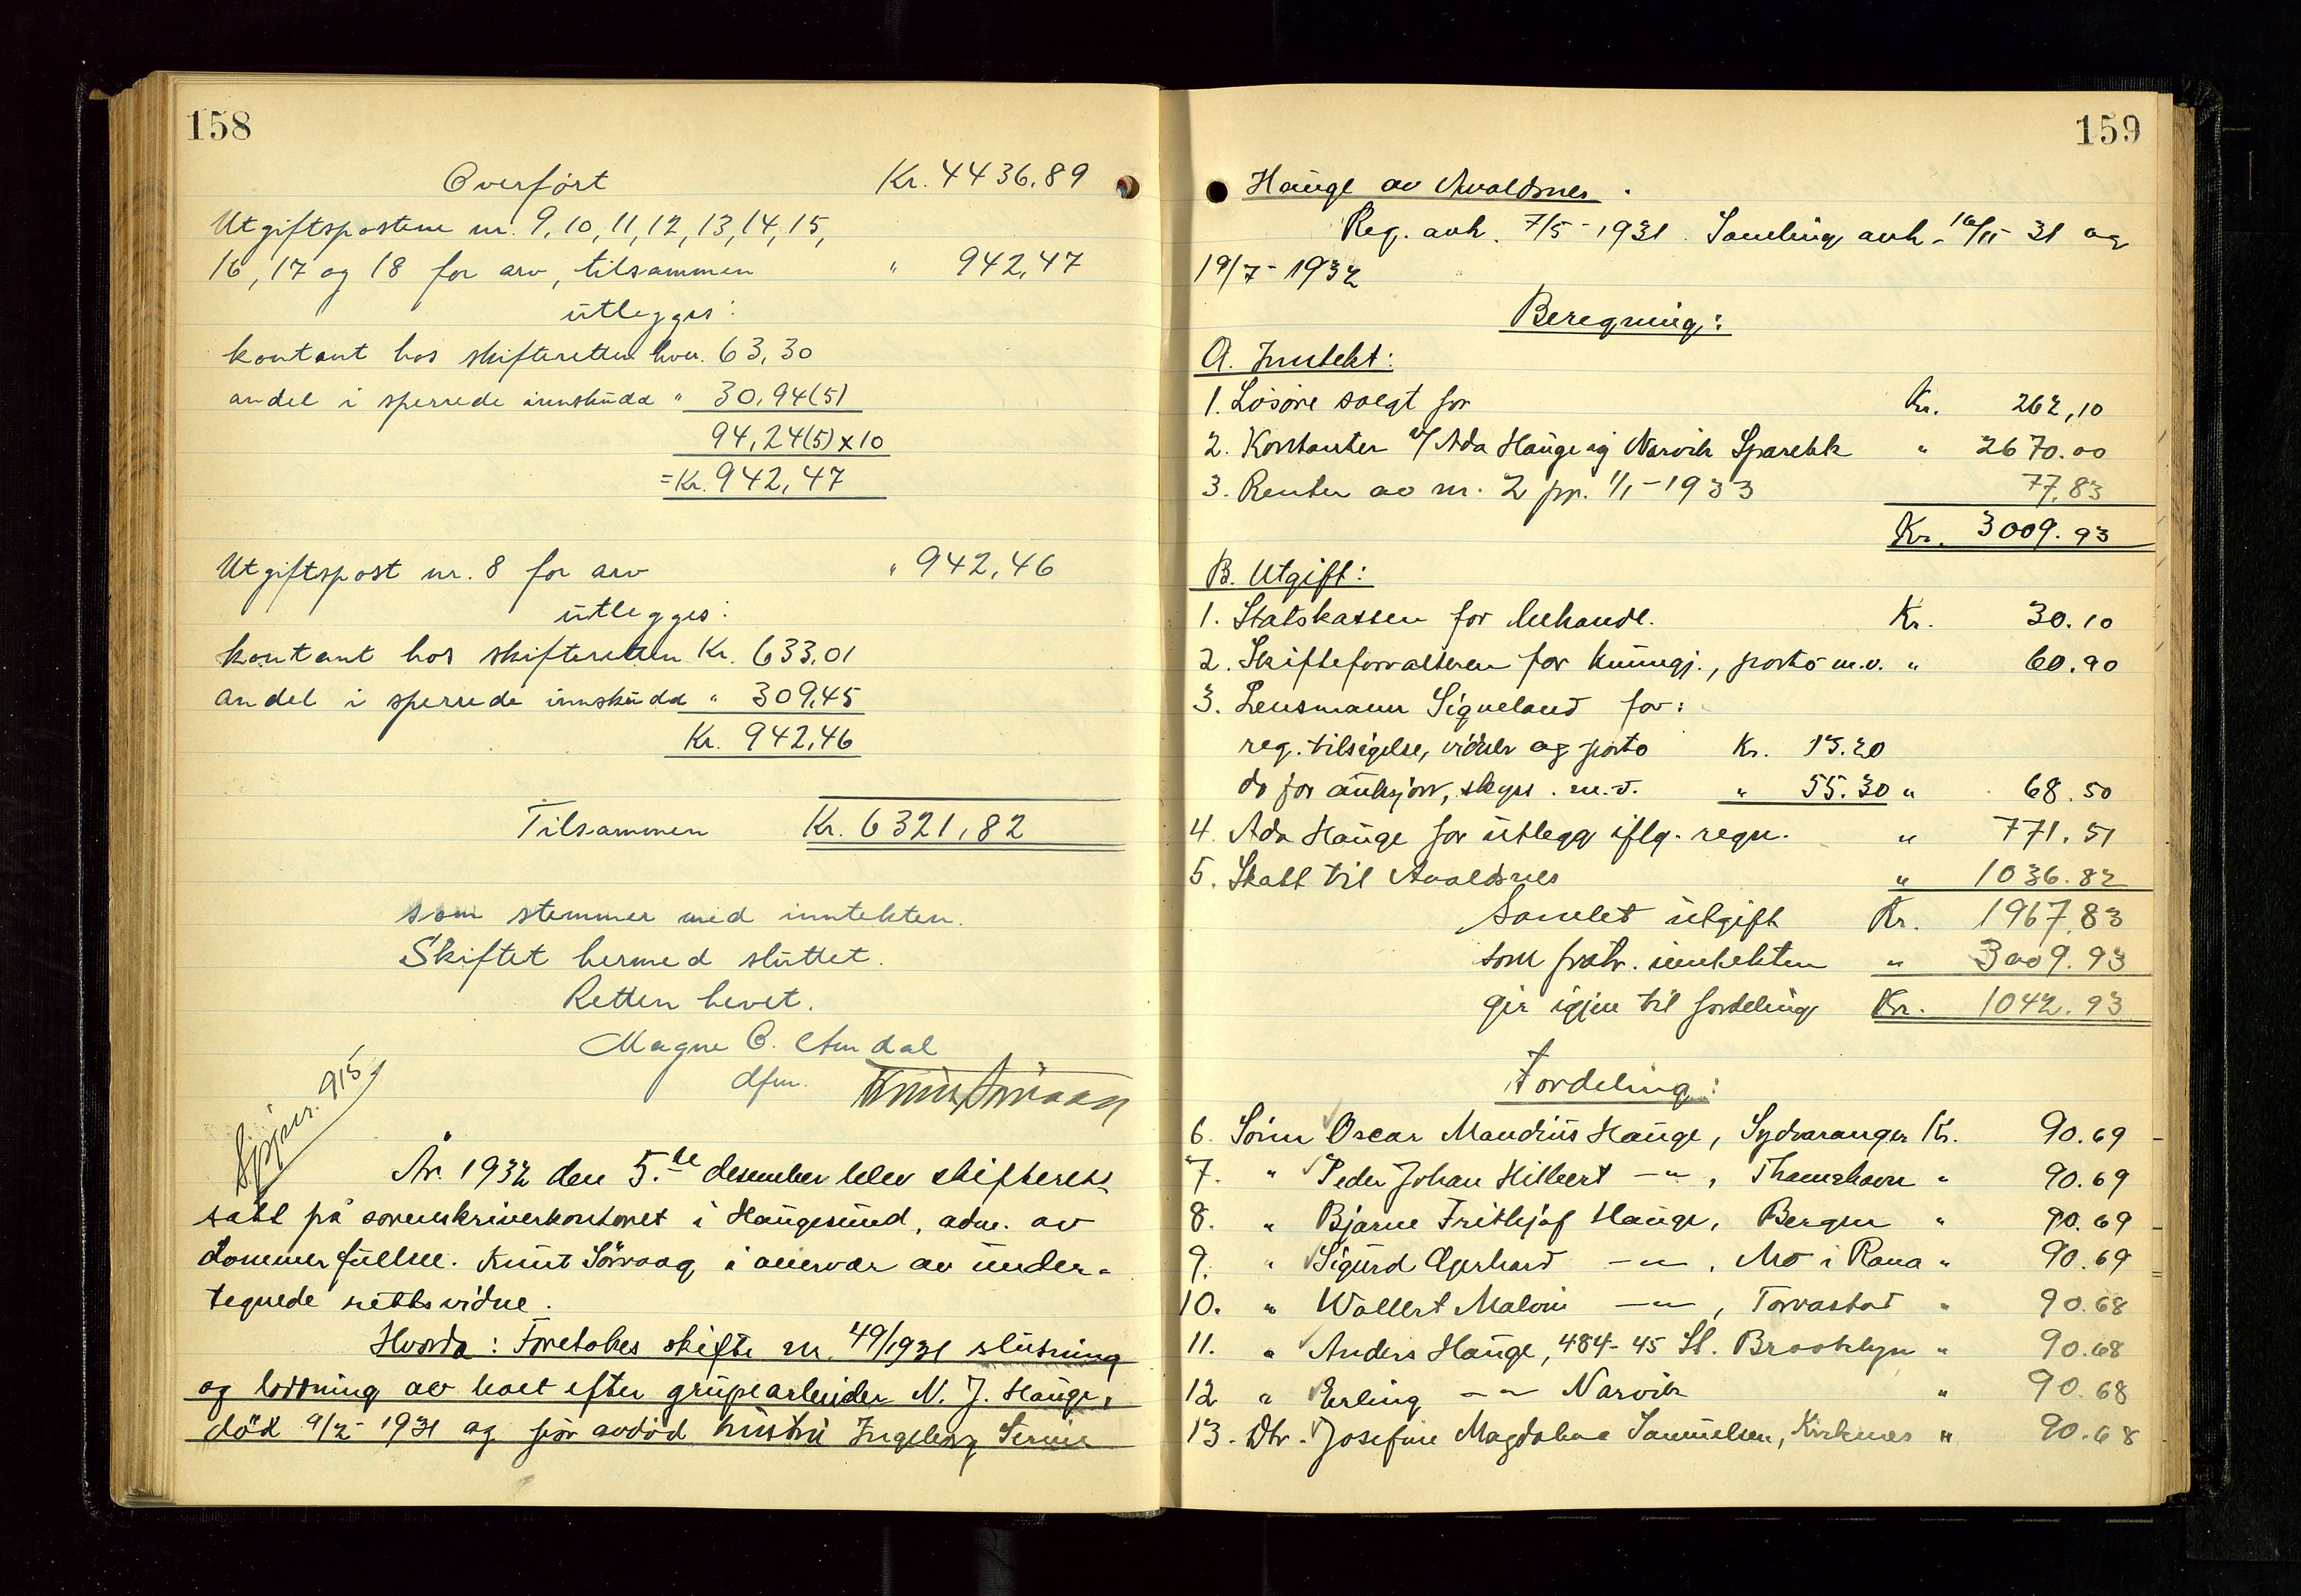 158
Overført Kr. 4436,89
Utgiftspostene nr. 9, 10, 11, 12, 13, 14, 15,
16, 17 og 18 for arv, tilsammen " 942,47
utlegges:
kontant hos skifteretten hver. 63,30
andel i sperrede innskudd " 30,94(5)
94,24(5) x 10
= Kr. 942,47
Utgiftspost nr. 8 for arv " 942,46
utlegges:
kontant hos skifteretten Kr. 633,01
andel i sperrede innskudd " 309,45
Kr. 942,46
Tilsammen Kr. 6321,82
som stemmer med inntekten.
Skiftet hermed sluttet.
Retten hevet.
Magne O. Amdal
dfm. Knut Sørvaag
915
År 1932 den 5.te desember blev skifterett
satt på sorenskriverkontoret i Haugesund, adm. av
dommerfullm. Knut Sørvaag i overvær av under-
tegnede rettsvidne.
Hvorda: Foretokes skifte nr. 49/1931 slutning
og lodning av boet efter grubearbeider N. J. Hauge,
död 9/2 - 1931 og før avdöd hustru Ingeborg Serine
159
Hauge av Avaldsnes.
Reg. avh. 7/5 - 1931. Samling avh. 16/11 - 31 og
19/7 - 1932
Beregning:
A. Inntekt:
1. Løsøre solgt for Kr. 262,10
2. Kontanter v/ Ada Hauge og Narvik Sparebk " 2670.00
3. Renter av nr. 2 pp. 1/1 - 1933 77,83
Kr. 3009.93
B. Utgift:
1. Statskassen for behandl. Kr. 30.10
2. Skifteforvalteren for kunngj., porto m.v. " 60.90
3. Lensmann Siqueland for:
reg. tilsigelse, vidner og porto Kr. 13.20
do for auksjon, skyss. m.v. " 55.30 " 68.50
4. Ada Hauge for utlegg iflg. regn. " 771.51
5. Skatt til Avaldsnes " 1036.82
Samlet utgift Kr. 1967,83
som fratr. inntekten " 3009.93
gir igjen til fordeling Kr. 1042.93
Fordeling:
6. Sønn Oscar Maudius Hauge, Sydvaranger Kr. 90.69
7. " Peder Johan Hilbert -"-, Thamshavn " 90.69
8. " Bjarne Frithjof Hauge, Bergen " 90.69
9. " Sigurd Gerhard -"-, Mo i Rana " 90.69
10. " Wollert Malvin -"-, Torvastad " 90.68
11. " Anders Hauge, 484-45 St. Brooklyn " 90.68
12 " Erling -"- Narvik " 90.68
13. Dtr. Josefine Magdalena Samuelsen, Kirkenes " 90.68